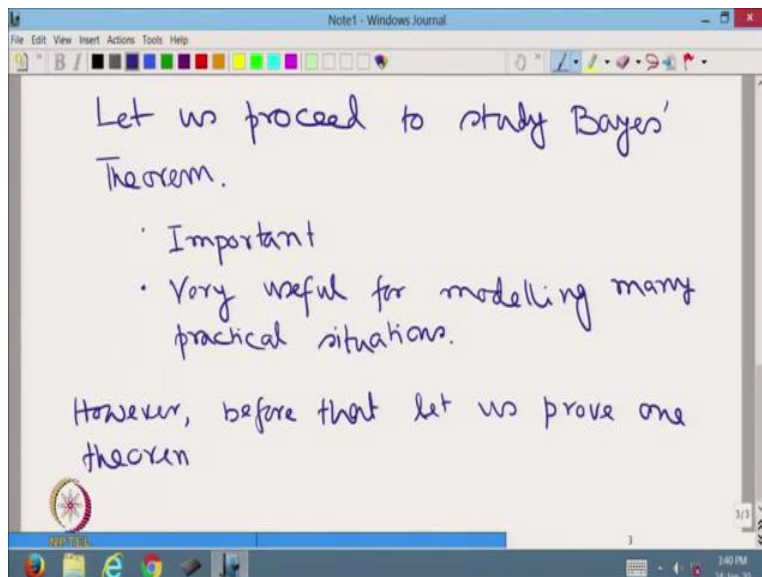 Note1 - Windows Journal
File Edit View Insert Actions Tools Help
B I
Let us proceed to study Bayes'
Theorem.
· Important
· Very useful for modelling many
practical situations.
However, before that let us prove one
theorem
NPTEL
3/3
3
3:40 PM